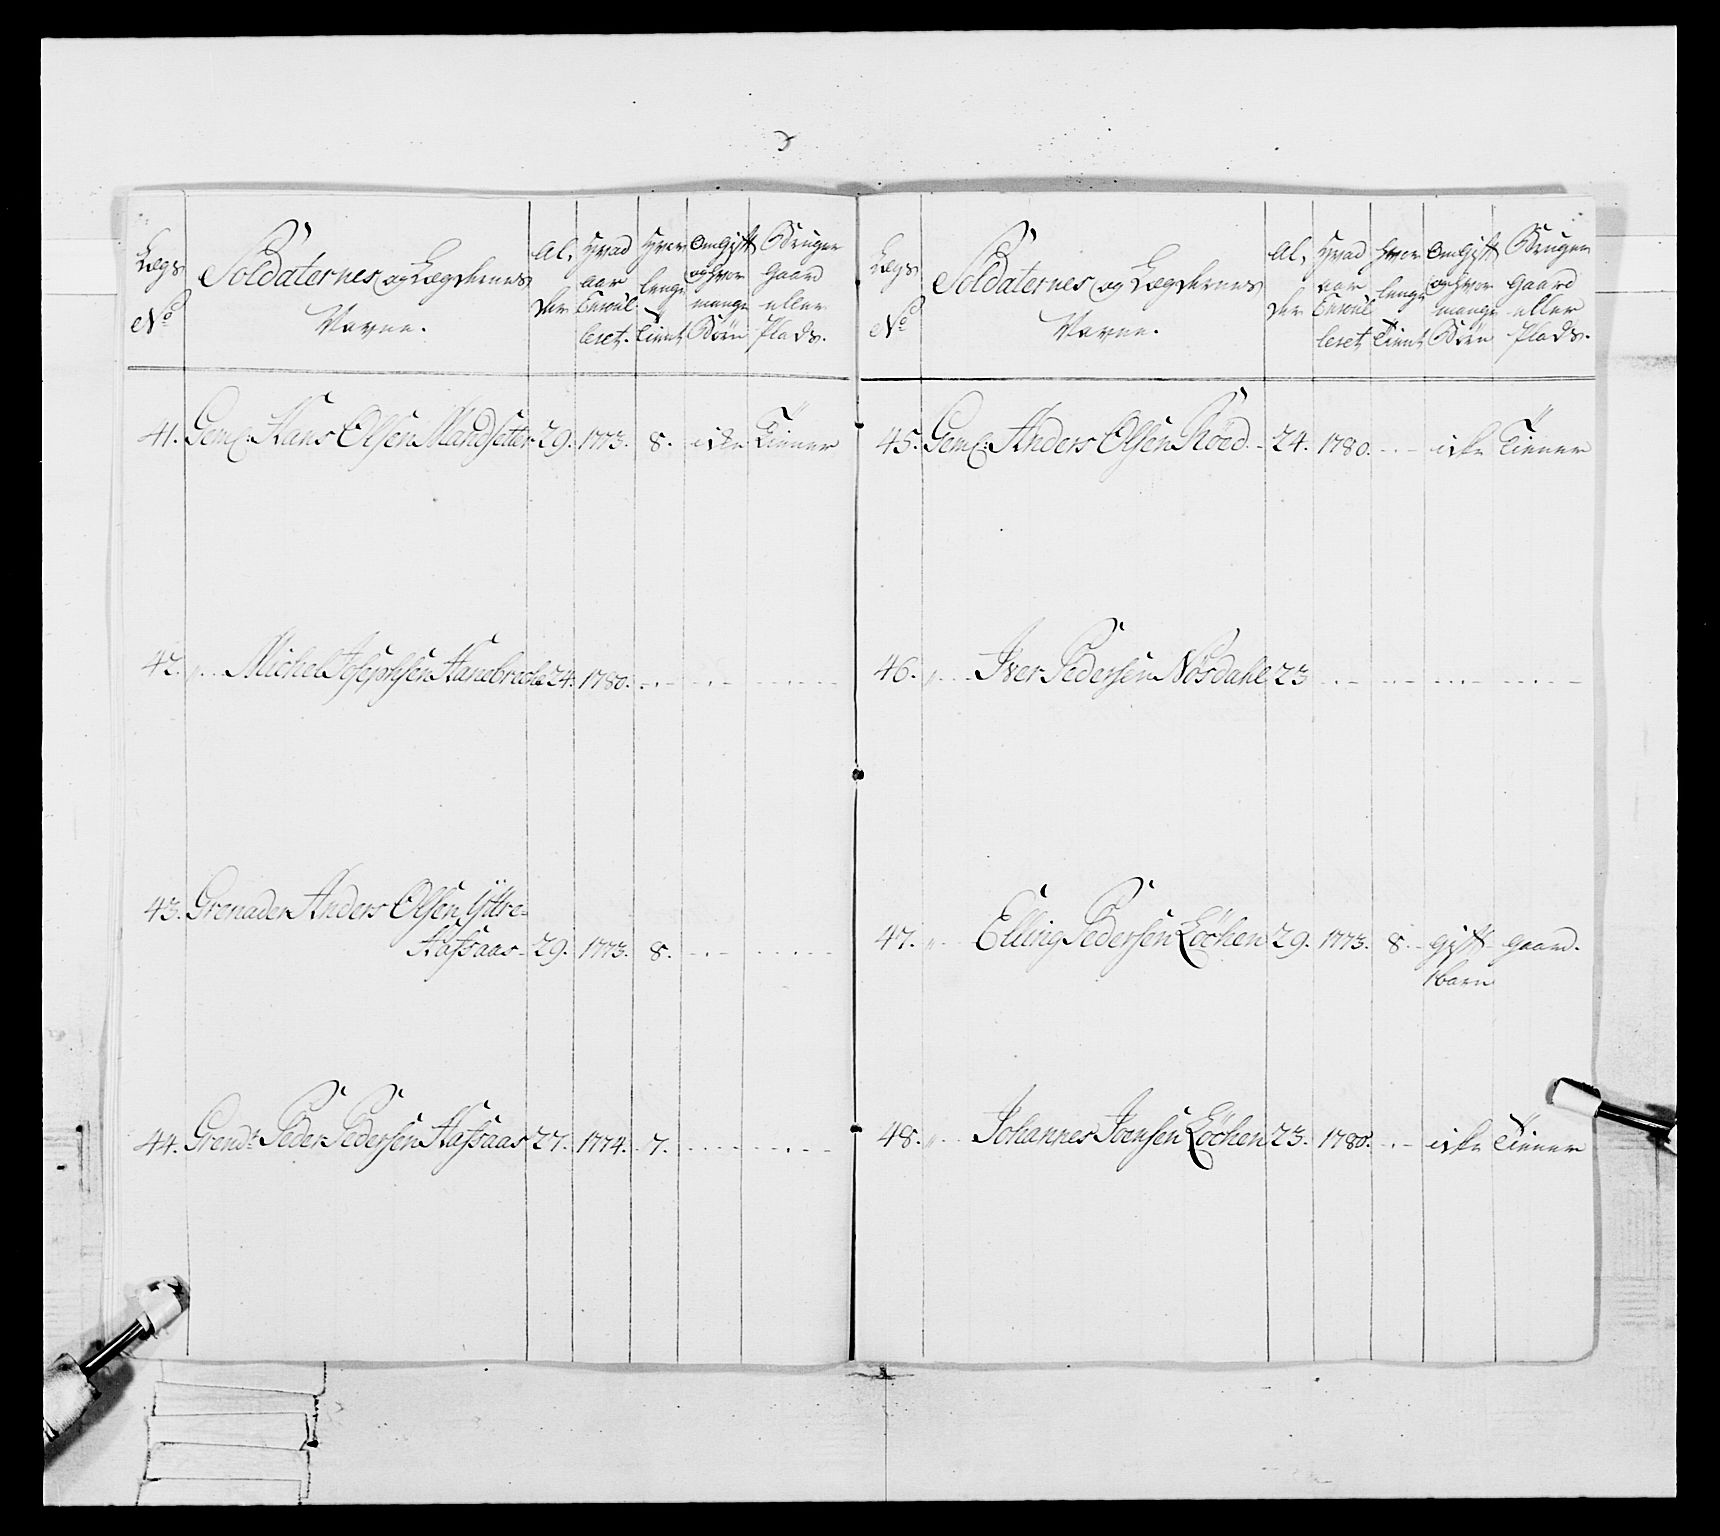 Lægs No
Soldaternes og Lægdernes Navne.
Al, der
Hvad aar Enroul leret.
Hvor lenge Tient
Om Gift og Hvor mange Børn
Bruger Gaard eller Plads.
41. Geml. Hans Olsen Mandsetter 29. 1773. 8. icke Tiener
42. " Michel Josephsen Hanebrecke 24. 1780.
43. Grenader Anders Olsen Yttre-
Aafsaas - 29. 1773. 8.
44. Grendr Peder Pedersen Aafsaas 27. 1774. 7.
Lægs No
Soldaternes og Lægdernes Navne.
Al, der
Hvad aar Enroul leret
Hvor lenge Tient
Om Gift og Hvor mange Børn
Bruger Gaard eller Plads.
45. Geml. Anders Olsen Röed - 24. 1780. icke Tiener
46. " Iver Pedersen Nösdahl 23
47. " Elling Pedersen Löchen 29. 1773. 8. gift gaard.
1 barn
48. " Johannes Joensen Löchen 23. 1780. icke Tiener